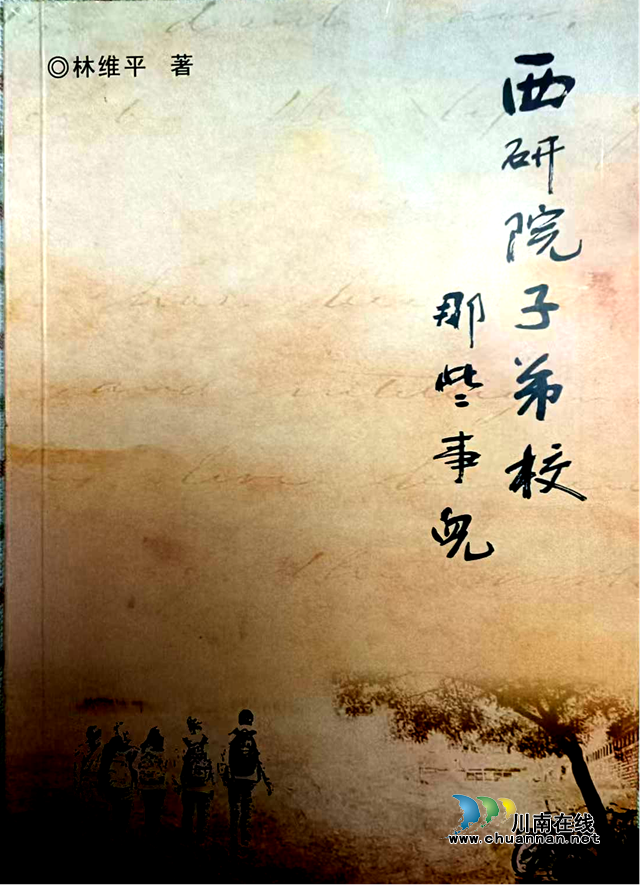 ◎林维平 著
西研院子弟校
那些事儿
川南在线
www.chuannan.net